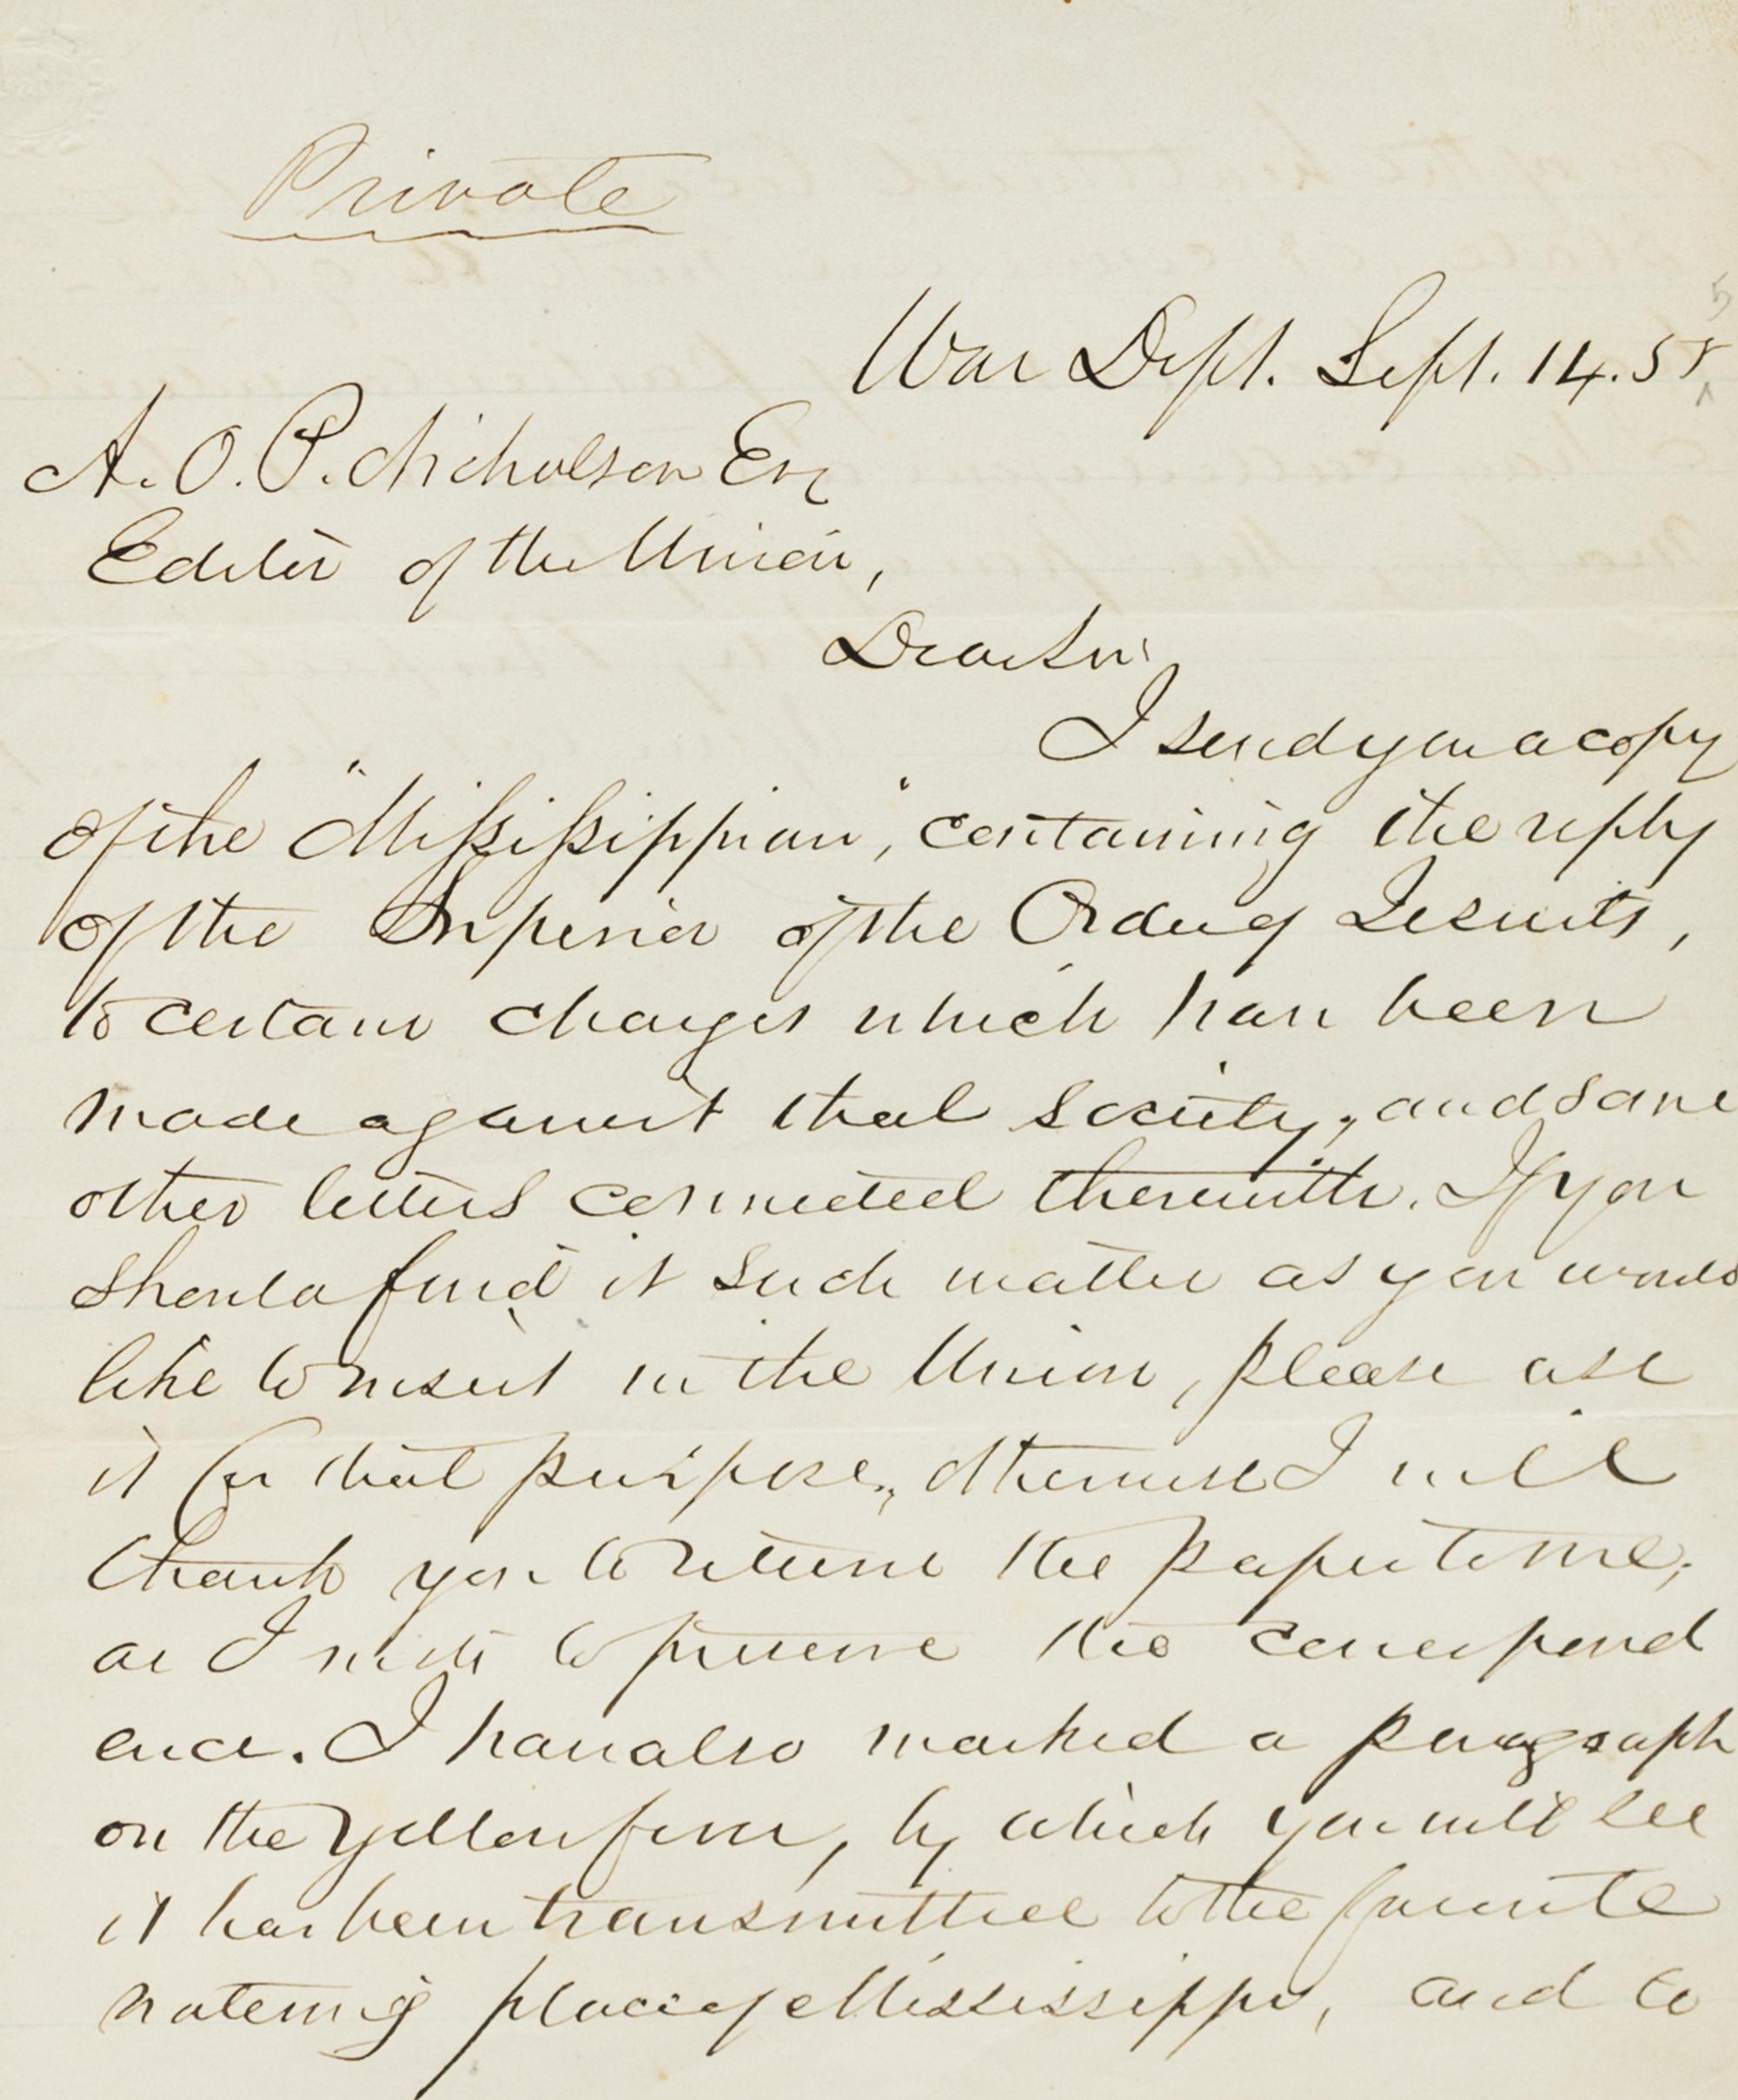 Private
War Dept. Sept. 14. 55
A. O. P. Nicholson Esq
Editor of the Union,
Dear Sir:
I send you a copy
of the "Mississippian", containing the reply
of the Superior of the Order of Jesuits,
to certain charges which have been
made against that society; and some
other letters connected therewith. If you
should find it such matter as you would
like to insert in the Union, please use
it for that purpose, otherwise I will
thank you to return the paper to me;
as I wish to preserve the correspond
ence. I have also marked a paragraph
on the Yellow fever, by which you will see
it has been transmitted to the favorite
watering place of Mississippi, and to